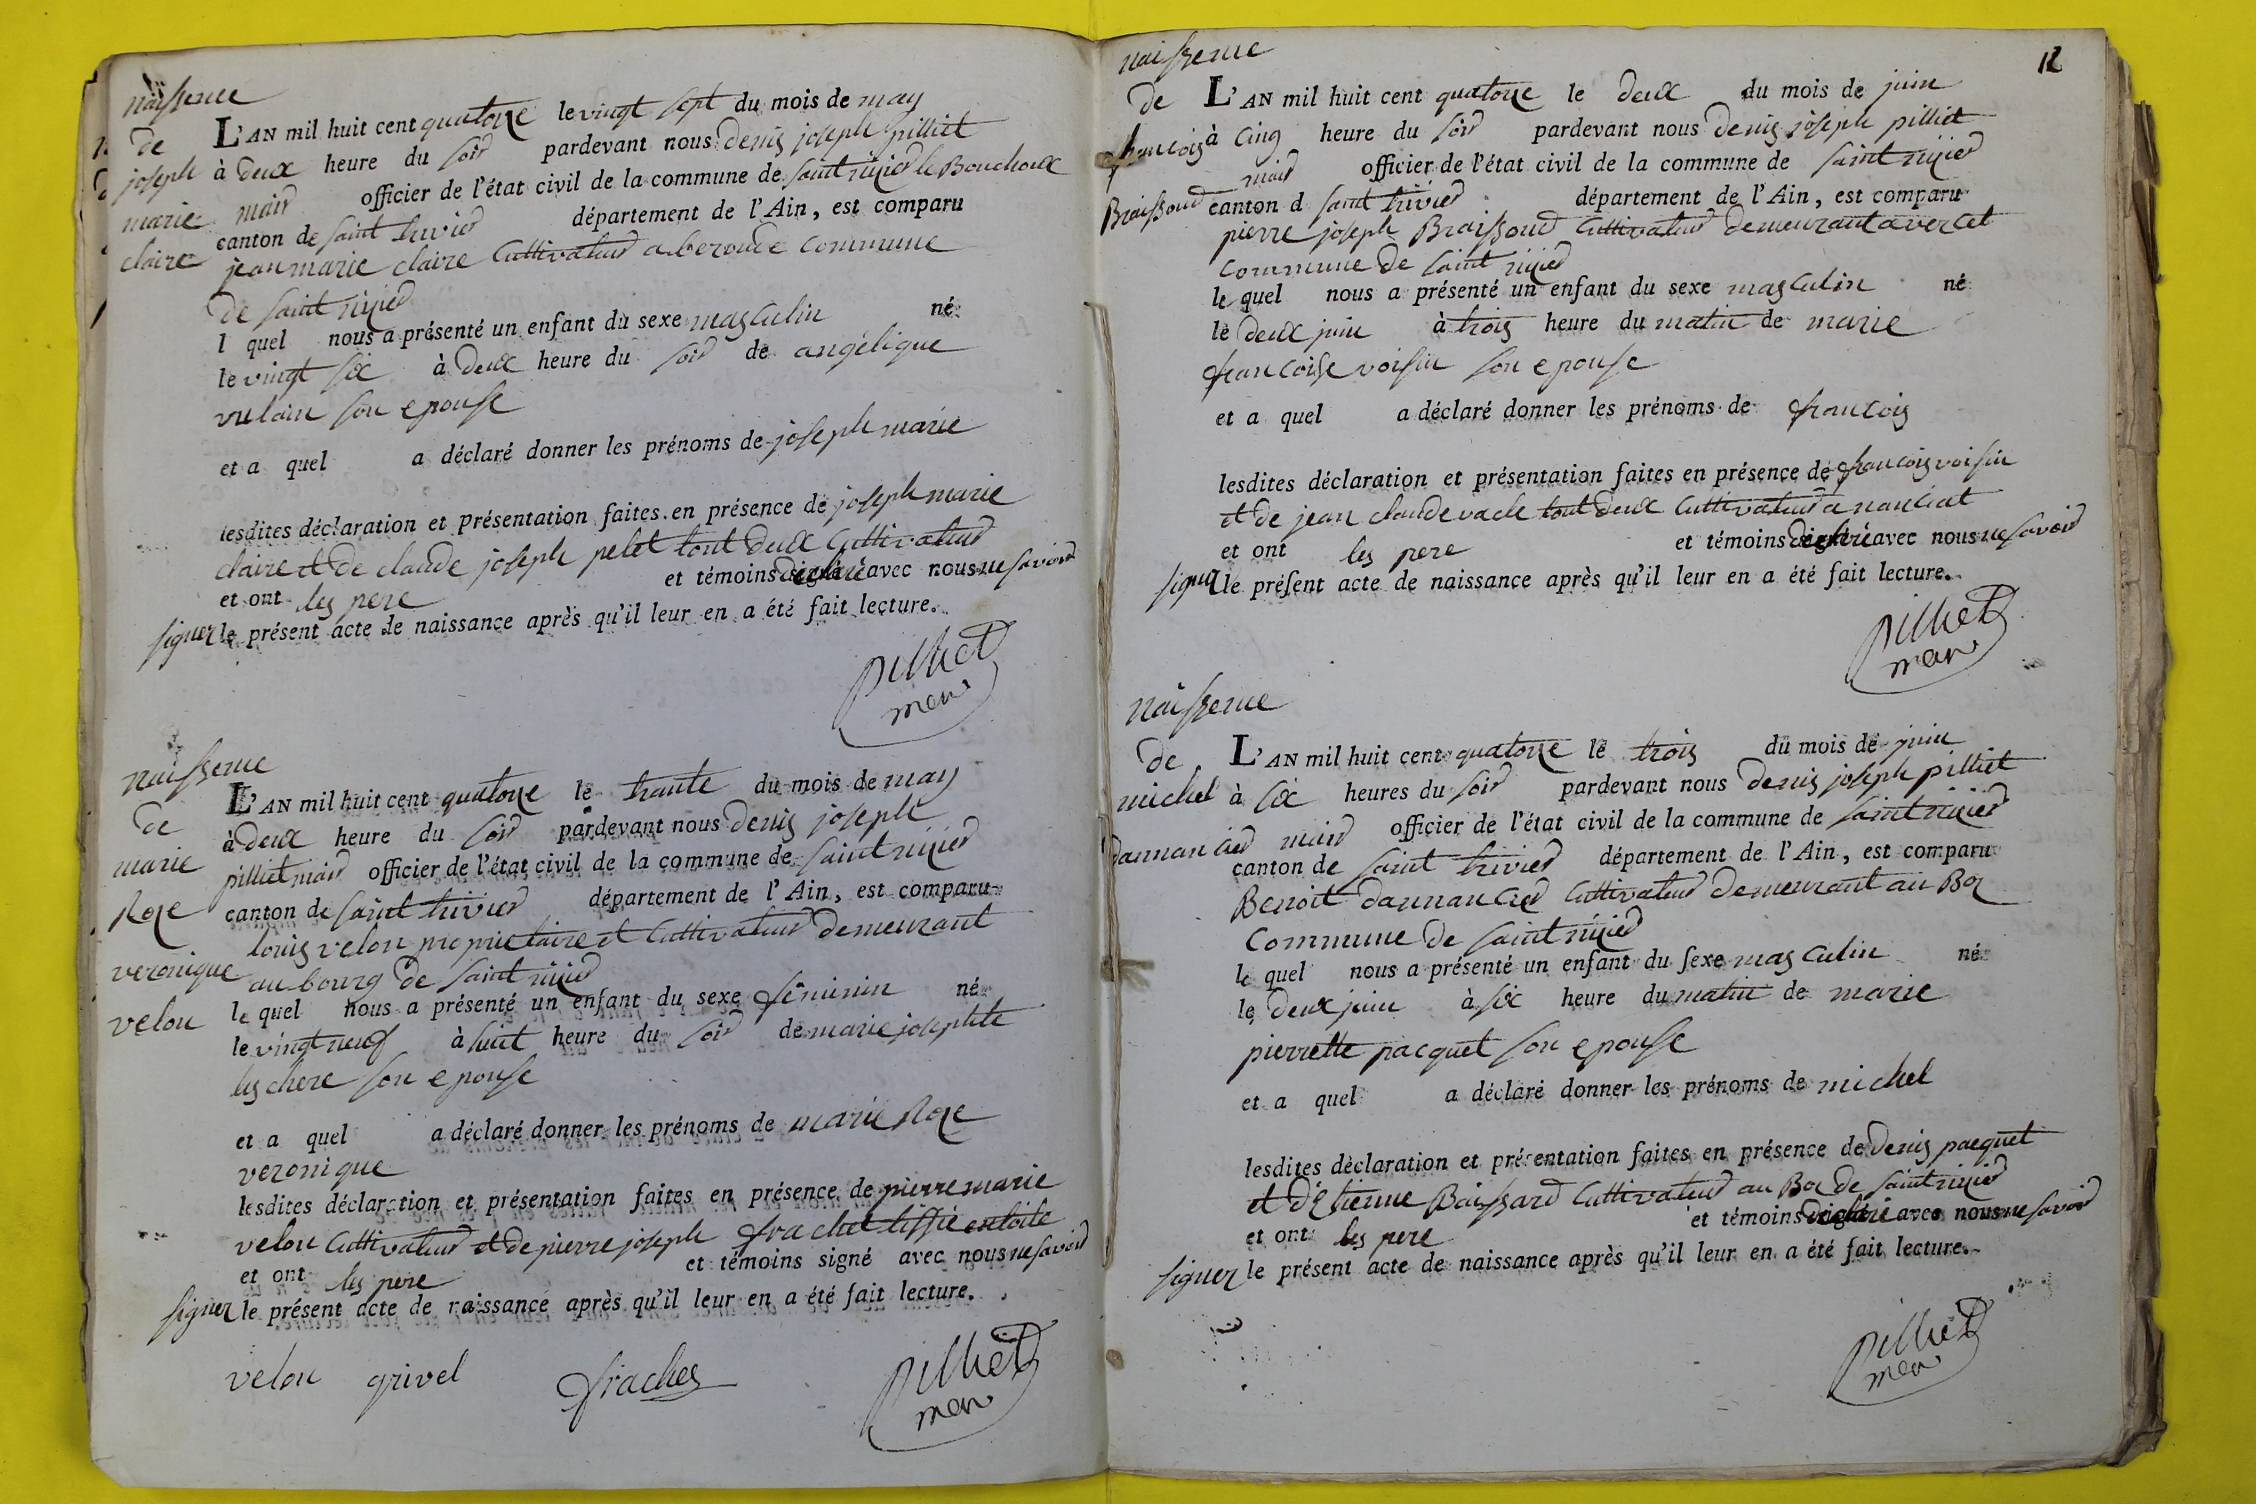 naissence
de
joseph
marie
claire
L'AN mil huit cent quatorze le vingt sept du mois de may
à deux heure du soir pardevant nous denis joseph pilliet
mair officier de l'état civil de la commune de saint nizier le Bouchoux
canton de saint trivier département de l'Ain, est comparu
jean marie claire Cultivateur a beroude commune
de saint nizier
l quel nous a présenté un enfant du sexe masculin né
le vingt six à deux heure du soir de angélique
vulain son epouse
et a quel a déclaré donner les prénoms de joseph marie
lesdites déclaration et présentation faites en présence de joseph marie
claire et de claude joseph petet tout deux Cultivateur
et ont les pere et témoins declaré avec nous ne savoir
signer le présent acte de naissance après qu'il leur en a été fait lecture.
pilliet
mair
naissence
de
marie
Roze
veronique
velon
L'AN mil huit cent quatorze le trante du mois de may
à deux heure du soir pardevant nous denis joseph
pilliet mair officier de l'état civil de la commune de saint nizier
canton de saint trivier département de l'Ain, est comparu
louis velon proprietaire et Cultivateur demeurant
au bourg de saint nizier
le quel nous a présenté un enfant du sexe féminin né
le vingt neuf à huit heure du soir de marie josephte
leschere son epouse
et a quel a déclaré donner les prénoms de marie Roze
veronique
lesdites déclaration et présentation faites en présence de pierre marie
velon Cultivateur et de pierre joseph frachet tissié en toile
et ont les pere et témoins signé avec nous ne savoir
signer le présent acte de naissance après qu'il leur en a été fait lecture.
velon grivel frachet
pilliet
mair
12
naissence
de
francois
Braissoud
L'AN mil huit cent quatorze le deux du mois de juin
à cinq heure du soir pardevant nous denis joseph pilliet
mair officier de l'état civil de la commune de saint nizier
canton d saint trivier département de l'Ain, est comparu
pierre joseph Braissoud Cultivateur demeurant a vercet
commune de saint nizier
le quel nous a présenté un enfant du sexe masculin né
le deux juin à trois heure du matin de marie
francoisse voisin son epouse
et a quel a déclaré donner les prénoms de francois
lesdites déclaration et présentation faites en présence de francois voisin
et de jean claude vacle tout deux Cultivateur a nanciat
et ont les pere et témoins declaré avec nous ne savoir
signer le présent acte de naissance après qu'il leur en a été fait lecture.
pilliet
mair
naissence
de
michel
dannancier
L'AN mil huit cent quatorze le trois du mois de juin
à six heures du soir pardevant nous denis joseph pilliet
mair officier de l'état civil de la commune de saint nizier
canton de saint trivier département de l'Ain, est comparu
Benoit dannancier Cultivateur demeurant au Boz
Commune de saint nizier
le quel nous a présenté un enfant du sexe masculin né
le deux juin à six heure du matin de marie
pierrette pacquet son epouse
et a quel a déclaré donner les prénoms de michel
lesdites déclaration et présentation faites en présence de denis pacquet
et d'étienne Boissard Cultivateur au Boz de saint nizier
et ont les pere et témoins declaré avec nous ne savoir
signer le présent acte de naissance après qu'il leur en a été fait lecture.
pilliet
mair